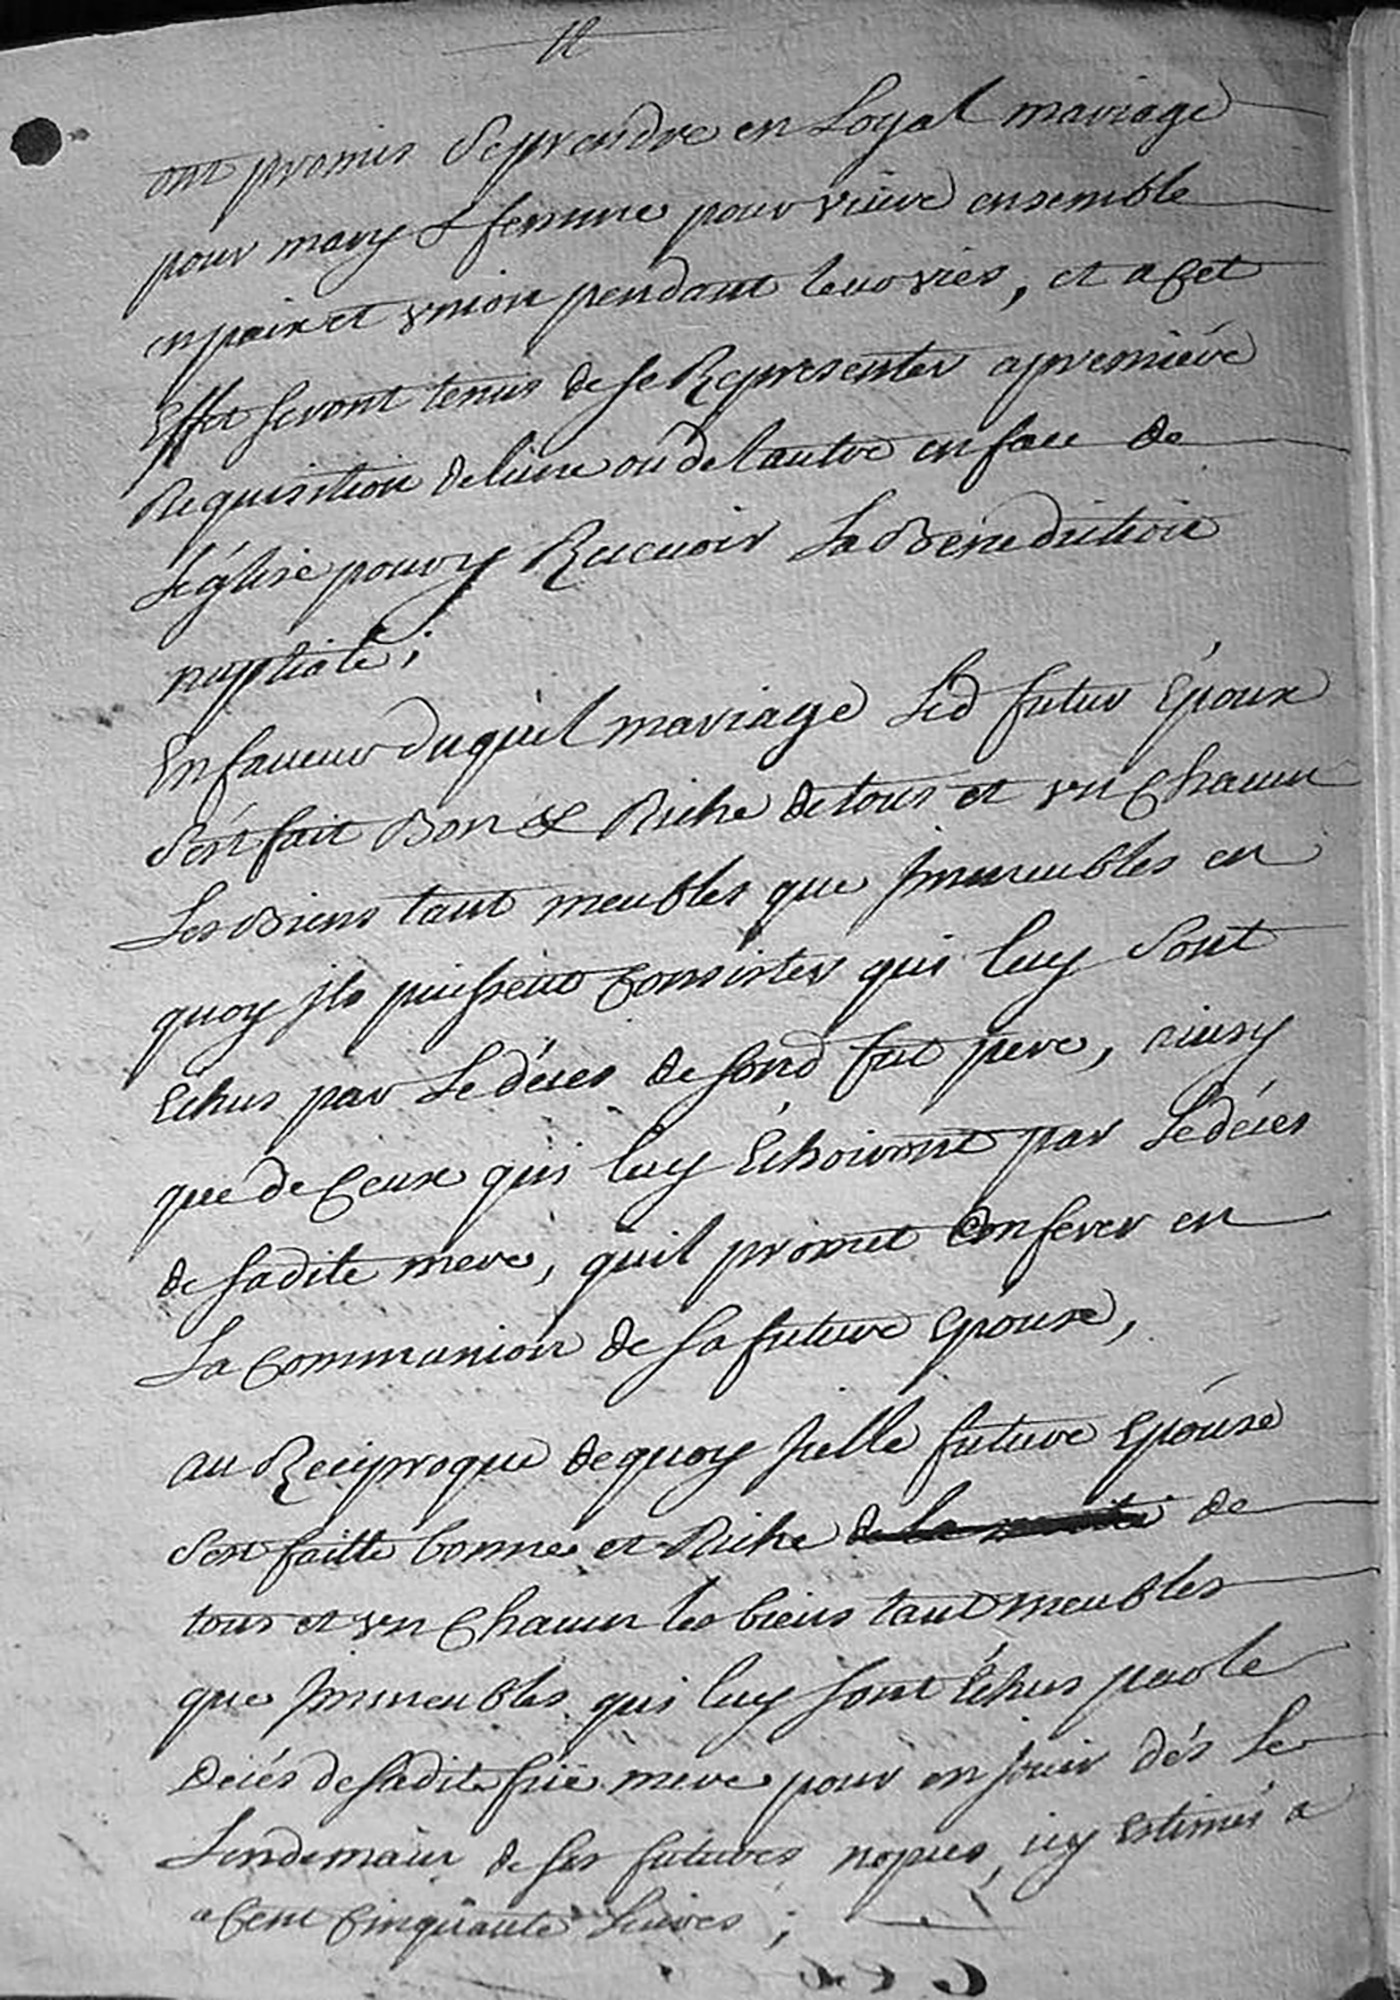 ont promis se prendre en Loyal mariage
pour mary & femme pour vivre ensemble
en paix et vnion pendant leurs vies, et a cet
Effet seront tenus de se Representer a premiére
Requisition de lune ou de lautre en face de
Léglise pour y Recevoir La Bénédiction
nuptiale;
En faveur duquel mariage Led futur Époux
s'ést fait Bon & Riche de tous et vn Chacun
Les Biens tant meubles que jmmeubles en
quoy jls puissent Consister qui luy sont
Echus par Le déces de sond fut pere, ainsy
que de Ceux qui luy Échoiront par Le déces
de sadite mere, quil promet Conferer en
La Communion de sa future Epouse,
au Reciproque de quoy jcelle future Epouse
sest faitte bonne et Riche de la de
tous et vn Chacun les biens tant meubles
que jmmeubles qui luy sont Échus par le
décés de sadite füe mere pour en jouir dés Le
Lendemain de ses futures nopces, icy Estimés a
a Cent Cinquante Livres;